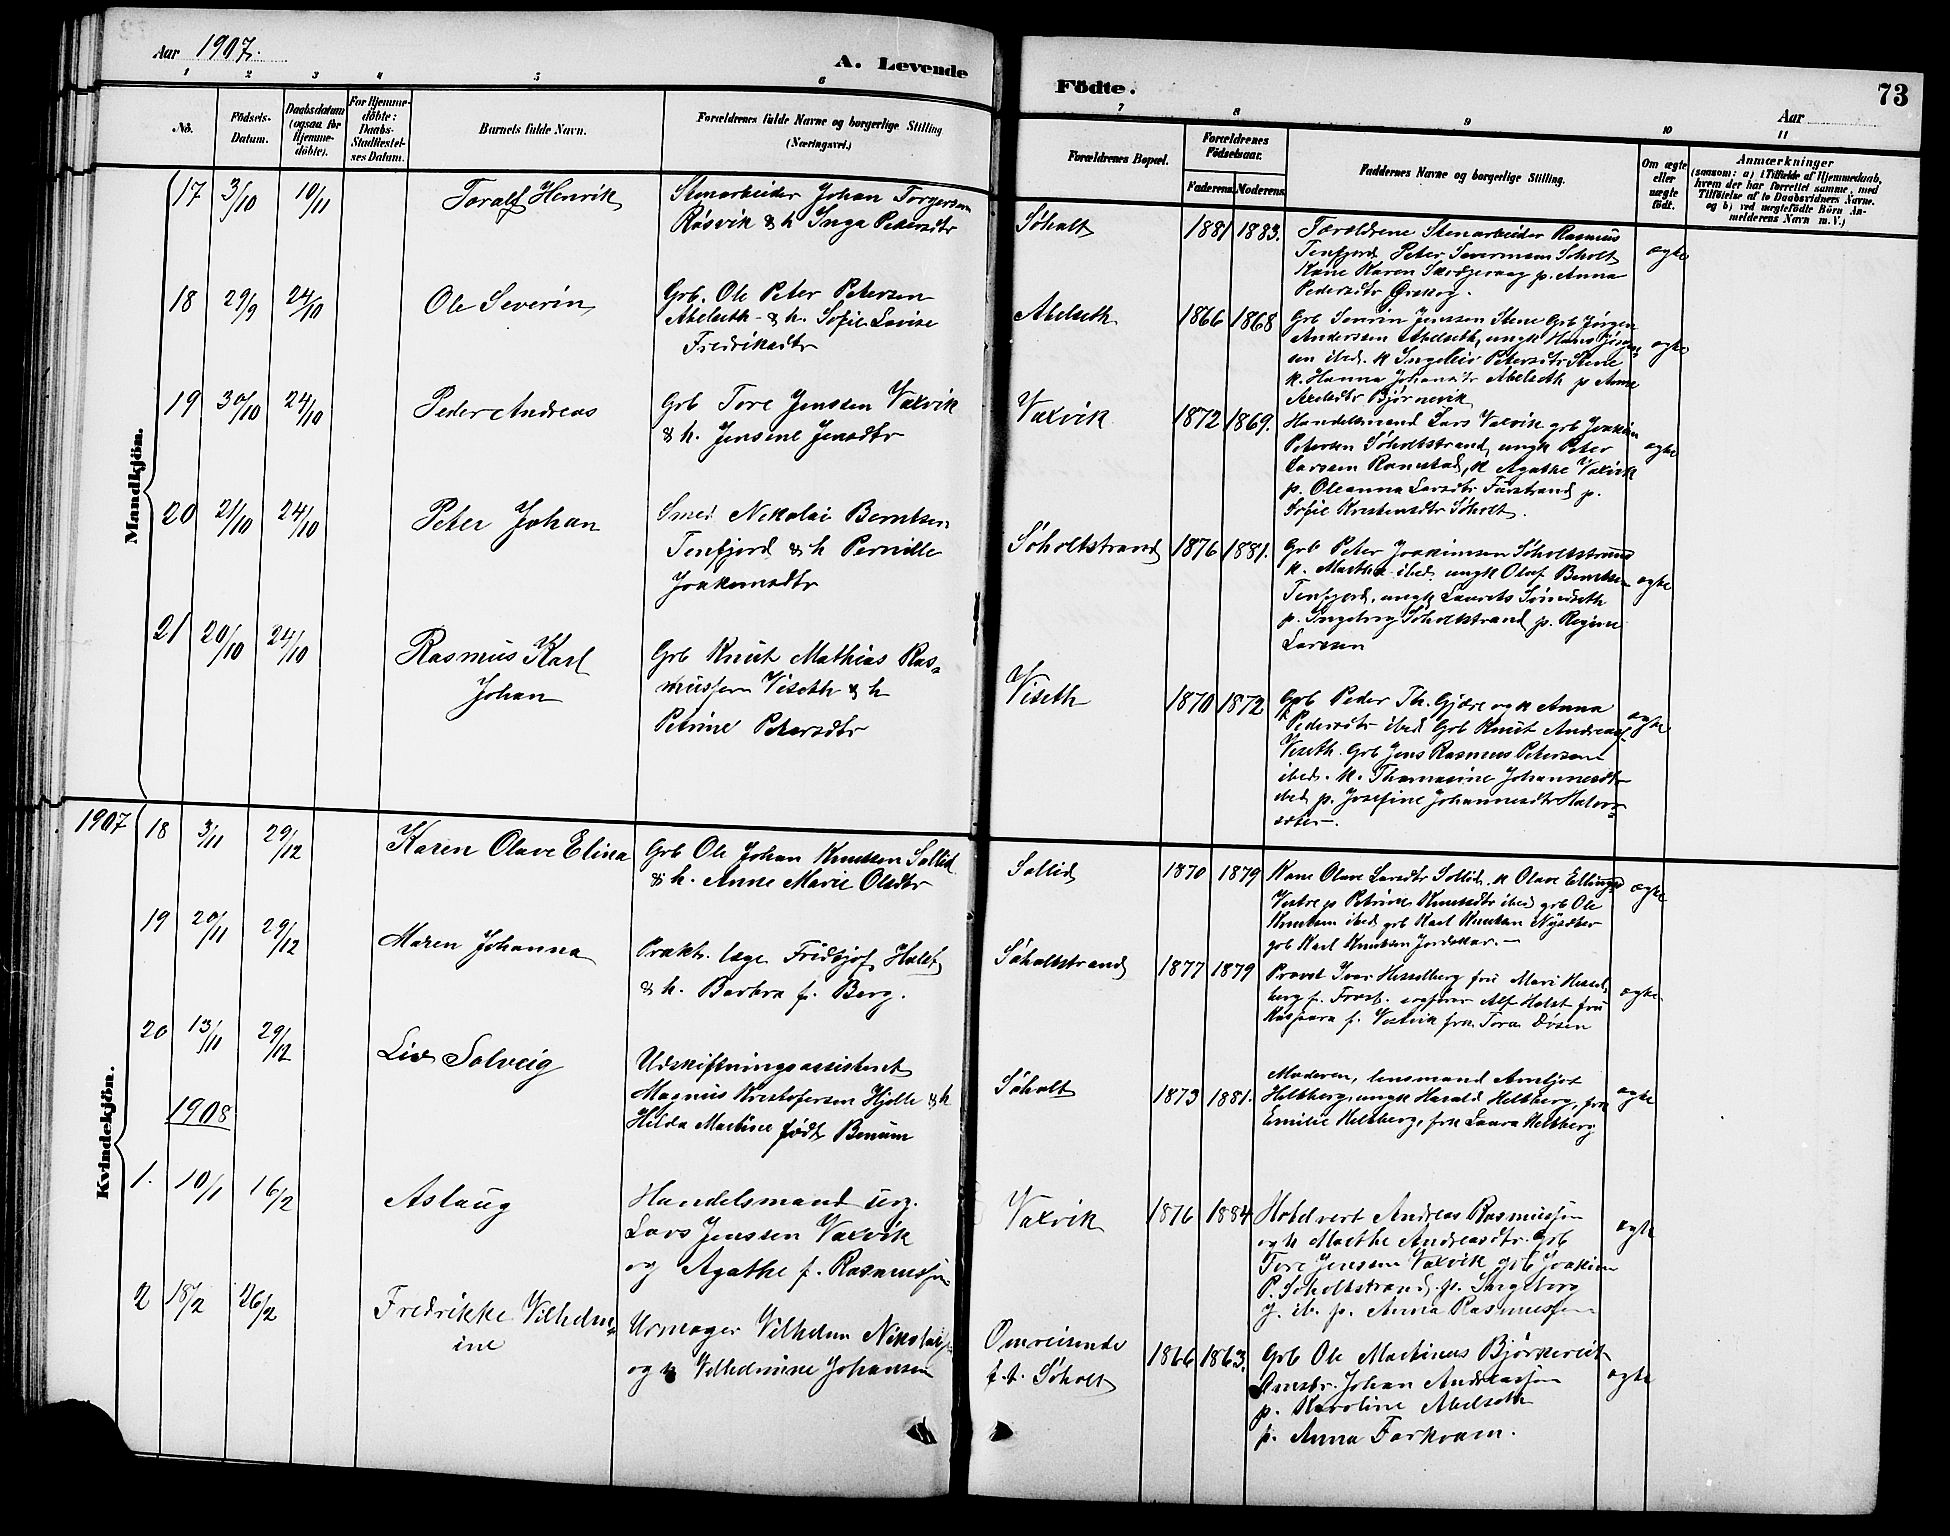 Aar 1907.
A. Levende
Födte.
73
Aar
1 2 3 4 5 6
7 8 9 10 11
No.
Födsels-
Datum.
Daabsdatum
(ogsaa for
Hjemme-
döbte).
For Hjemme-
döbte:
Daabs-
Stadfæstel-
ses Datum.
Barnets fulde Navn.
Forældrenes fulde Navne og borgerlige Stilling
(Næringsvei.)
Forældrenes Bopæl.
Forældrenes
Födselsaar.
Faderens. Moderens.
Faddernes Navne og borgerlige Stilling.
Om ægte
eller
uægte
födt.
Anmærkninger
(saasom: a) i Tilfælde af Hjemmedaab,
hvem der har forrettet samme, med
Tilföielse af to Daabsvidners Navne.
og b) ved uægtefödte Börn An-
melderens Navn m. V.)
Mandkjön.
17 3/10 10/11 Toralf Henrik
Stenarbeider Johan Torgersen
Røsvik & h Inga Pedersdtr
Søholt 1881 1883.
Forældrene Stenarbeider Rasmus
Tenfjord Peter Severinsen Søholt
Kone Karen p. Anna
Pedersdtr Ørskog.
ægte
18 29/9 24/10 Ole Severin
Grb. Ole Peter Petersen
Abelseth & h. Sofie Lovise
Fredriksdtr
Abelseth 1866 1868
Grb Severin Jenssen Stene Grb Jørgen
Anderssen Abelseth, ungk Hans Jørgen-
sen ibed. k Ingeleiv Petersdtr Stene
k. Hanna Johansdtr Abelseth p Anne
Axelsdtr Bjørnevik
ægte
19 30/10 24/10 Peder Andreas
Grb Tore Jenssen Vaxvik
& h. Jensine Jensdtr
Vaxvik 1872 1869.
Handelsmand Lars Vaxvik grb Joakim
Petersen Søholtstrand, ungk Peter
Larssen Ramstad, k Agathe Vaxvik
p. Oleanna Larsdtr Furstrand p.
Sofie Kristensdtr Søholt.
ægte
20 21/10 24/10 Peter Johan
Smed Nikolai Berntsen
Tenfjord & h Pernille
Joakimsdtr
Søholtstrand 1876 1881.
Grb Peter Joakimsen Søholtstrand
k. Marthe ibed. ungk Olaf Berntsen
Tenfjord, ungk Laurits
p. Ingeborg Søholtstrand p. Regine
Larssen
ægte
21 20/10 24/10 Rasmus Karl
Johan
Grb Knut Mathias Ras-
mussen Viseth & h
Petrine Petersdtr
Viseth 1870 1872
Grb Peder Th. Gjære og k Anna
Pedersdtr ibed Grb Knut Andreas
Viseth. Grb Jens Rasmus Petersen
ibed. k. Thomasine Johannesdtr
ibed p. Josefine Johannesdtr Halvor-
sæter.
ægte
Kvindekjön.
1907 18 3/11 29/12 Karen Olave Elina
Grb Ole Johan Knutsen Sollid
& h. Anne Marie Olsdtr
Sollid 1870 1879
Kone Olave Larsdtr Sollid, k Olave
Vestre p Petrine Knutsdtr ibed grb Ole
Knutsen ibed grb Karl Knutsen Nysæter
grb Karl Knutsen
ægte
19 20/11 29/12 Maren Johanna
Prakt. læge Fridtjof Holst
& h. Barbra f. Berg.
Søholtstrand 1877 1879
Provst Ivar Hesselberg fru Mari Hessel-
berg f. Frost. sogfører Alf Holst fru
Kaspara f. Vestvik frk. Tora Døsen
ægte
20 13/11 29/12 Liv Solveig
Udskiftningsassistent
Magnus Kristofersen Hjelle & h
Hilda Martine født Benum
Søholt 1873 1881.
Moderen, lensmand Arneljot
Heltberg, ungk Harald Heltberg, frk
Emilie Heltberg, frk Laura Heltberg
ægte
1908
1. 10/1 16/2 Aslaug
Handelsmand
Lars Jenssen Vaxvik
og Agathe f. Rasmussen
Vaxvik 1876 1884
Hotelvert Andreas Rasmussen
og k Marthe Andreasdtr. Grb
Tore Jenssen Vaxvik grb Joakim
P. Søholtstrand. p. Ingeborg
J. ib. p. Anna Rasmussen
ægte
2 18/2 26/2 Fredrikke Vilhelm-
ine
Urmager Vilhelm Nikolai
og h Vilhelmine Johansen
Omreisende
f. t. Søholt
1866 1863.
Grb Ole Martinus
Johan Andreassen
p. Karoline Abelseth
p. Anna Farkvam.
ægte